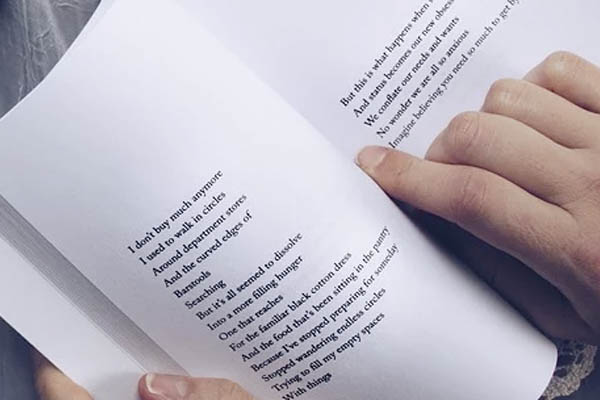 I don't buy much anymore
I used to walk in circles
Around department stores
And the curved edges of
Barstools
Searching
But it's all seemed to dissolve
Into a more filling hunger
One that reaches
For the familiar black cotton dress
And the food that's been sitting in the pantry
Because I've stopped preparing for someday
Stopped wandering endless circles
Trying to fill my empty spaces
With things
But this is what happens when
And status becomes our new obses
We conflate our needs and wants
No wonder we are all so anxious
Imagine believing you need so much to get by